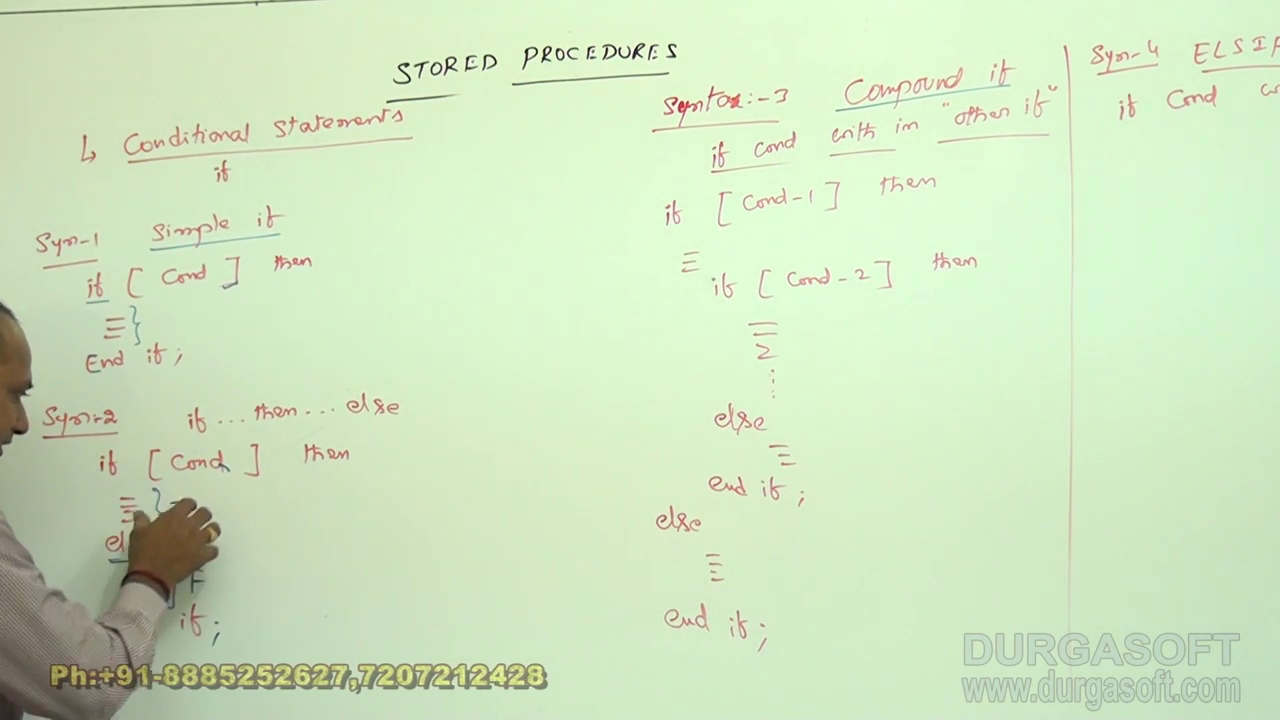 STORED PROCEDURES
↳ Conditional Statements
if
Syn-1 Simple if
if [ Cond ] then
End if ;
Syn-2 if ... then ... else
if [ Cond ] then
F
if ;
Syntax:-3 Compound if
if cond with in "other if"
if [ Cond-1 ] then
if [ Cond-2 ] then
else
end if ;
else
end if ;
Syn-4 ELSIF
if Cond
Ph:+91-8885252627,7207212428
DURGASOFT
www.durgasoft.com